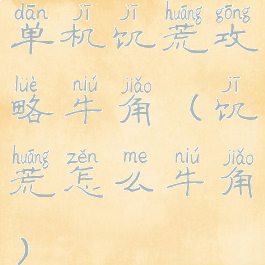 dān jī jī huāng gōng
单机饥荒攻
lüè niú jiǎo jī
略牛角（饥
huāng zěn me niú jiǎo
荒怎么牛角
）